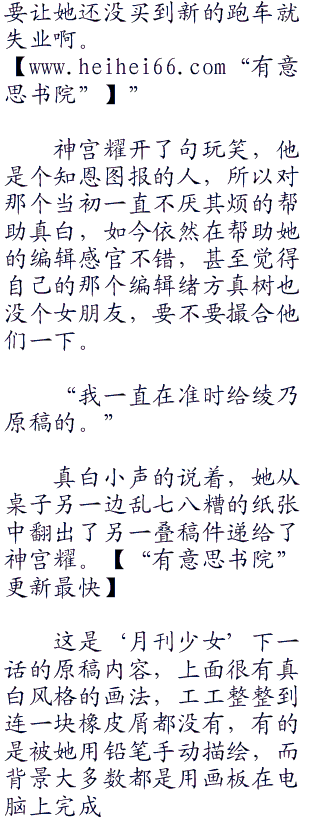 要让她还没买到新的跑车就
失业啊。
【www.heihei66.com“有意
思书院”】”
神宫耀开了句玩笑，他
是个知恩图报的人，所以对
那个当初一直不厌其烦的帮
助真白，如今依然在帮助她
的编辑感官不错，甚至觉得
自己的那个编辑绪方真树也
没个女朋友，要不要撮合他
们一下。
“我一直在准时给绫乃
原稿的。”
真白小声的说着，她从
桌子另一边乱七八糟的纸张
中翻出了另一叠稿件递给了
神宫耀。【“有意思书院”
更新最快】
这是‘月刊少女’下一
话的原稿内容，上面很有真
白风格的画法，工工整整到
连一块橡皮屑都没有，有的
是被她用铅笔手动描绘，而
背景大多数都是用画板在电
脑上完成